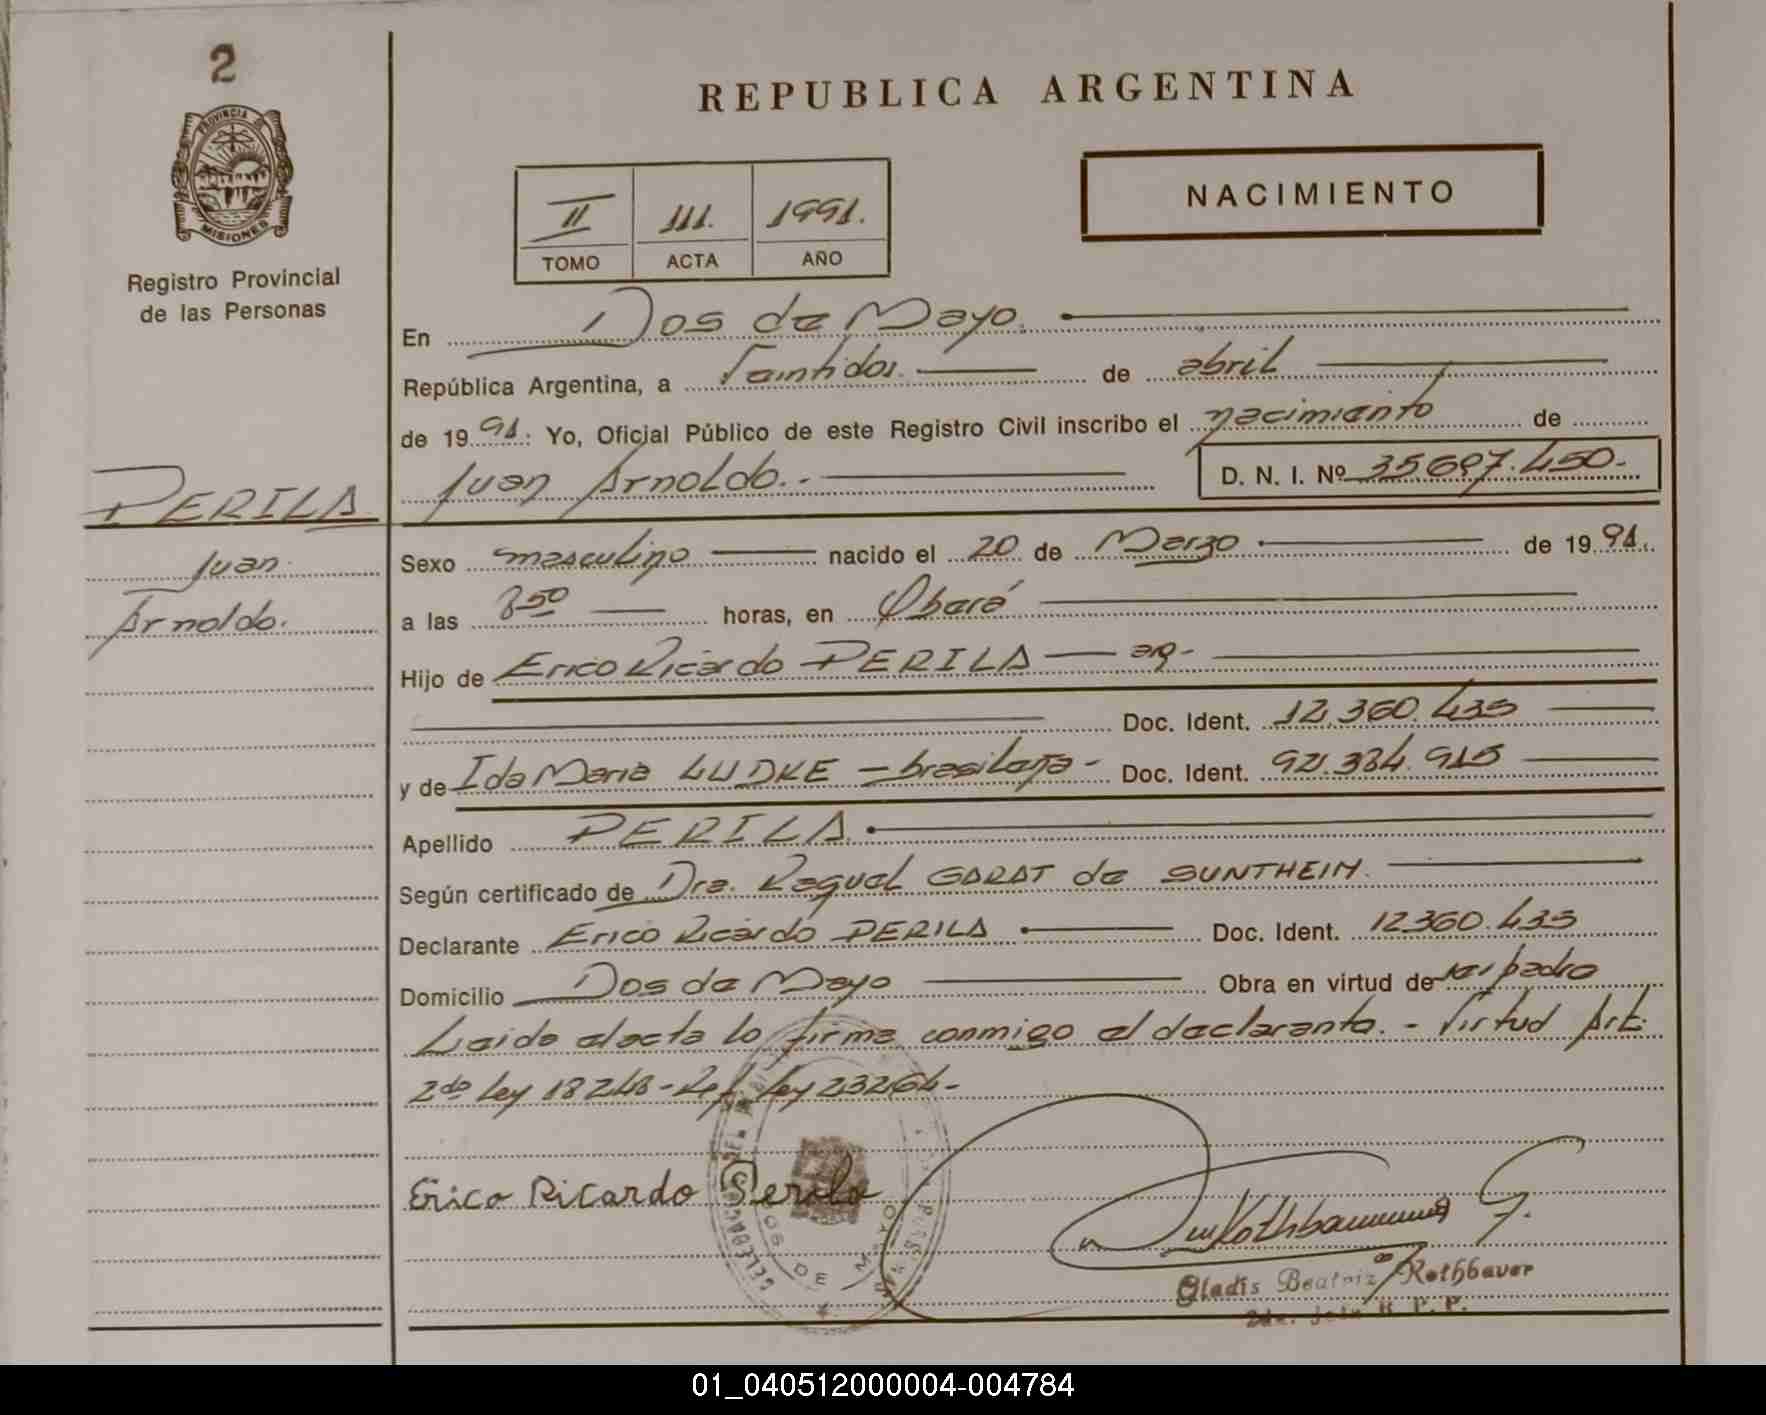 2
PROVINCIA DE
MISIONES
Registro Provincial
de las Personas
REPUBLICA ARGENTINA
II 111. 1991.
TOMO ACTA AÑO
NACIMIENTO
En Dos de Mayo.
República Argentina, a Veintidos. de abril
de 19 91. Yo, Oficial Público de este Registro Civil inscribo el nacimiento de
Juan Arnoldo.- D. N. I. Nº 35697.450.-
PERILA
Juan
Arnoldo.
Sexo masculino nacido el 20 de Marzo de 19 91.
a las 8 50 horas, en Oberá
Hijo de Erico Ricardo PERILA — arg-
Doc. Ident. 12.360.435
y de Ida Maria LUDKE - brasilera - Doc. Ident. 92.384.915
Apellido PERILA.
Según certificado de Dra. Raquel GARAT de SUNTHEIM.
Declarante Erico Ricardo PERILA Doc. Ident. 12360.435
Domicilio Dos de Mayo Obra en virtud de ser padre
Leida el acta lo firma conmigo el declarante. - Virtud Art.
2do Ley 18248 - Ref. Ley 23264-
Erico Ricardo Perila
DOS DE MAYO
Gladis Beatriz Rothbauer
R. P. P.
01_040512000004-004784